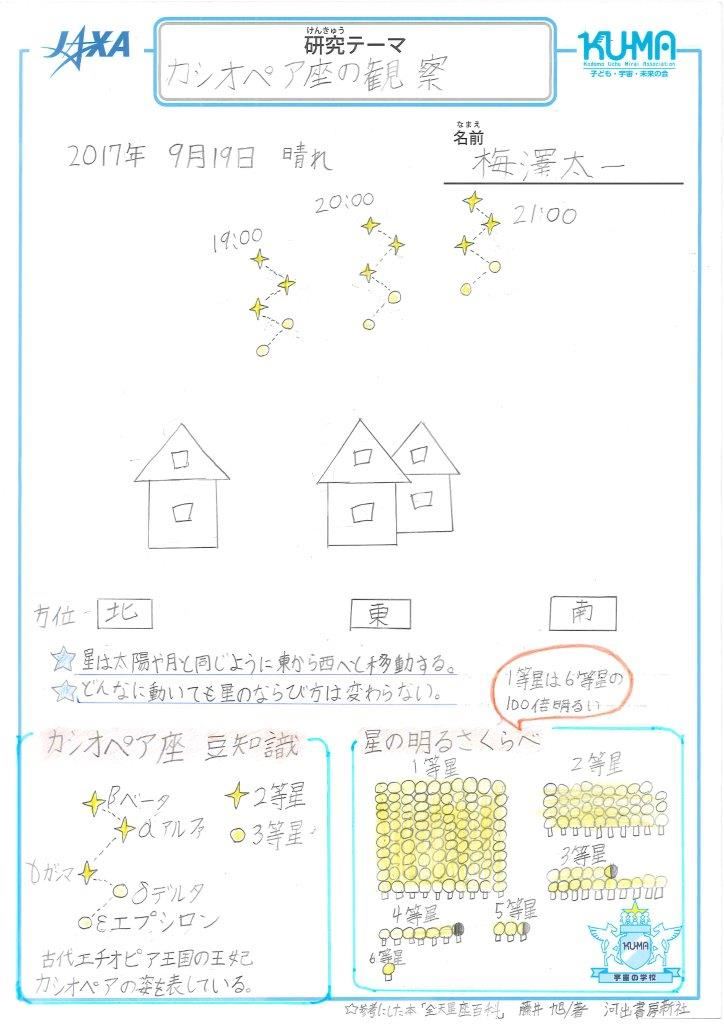 JAXA
けんきゅう
研究テーマ
カシオペア座の観察
KU-MA
Kodomo Uchu Mirai Association
子ども・宇宙・未来の会
2017年 9月19日 晴れ
なまえ
名前
梅澤太一
19:00
20:00
21:00
方位-北 東 南
星は太陽や月と同じように東から西へと移動する。
どんなに動いても星のならび方は変わらない。
1等星は6等星の
100倍明るい
カシオペア座 豆知識
βベータ
αアルファ
γガンマ
δデルタ
εエプシロン
2等星
3等星
古代エチオピア王国の王妃
カシオペアの姿を表している。
星の明るさくらべ
1等星
2等星
3等星
4等星
5等星
6等星
KU-MA
宇宙の学校
☆参考にした本「全天星座百科」 藤井旭/著 河出書房新社